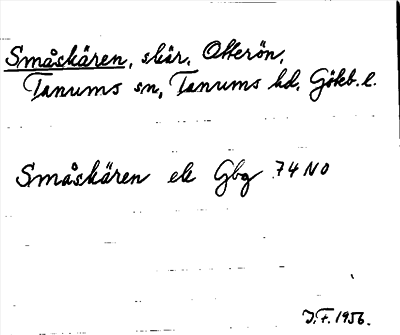 Småskären, skär, Otterön,
Tanums sn, Tanums hd, Göteb. l.
Småskären ek Gbg 74 NO
J.F. 1956.